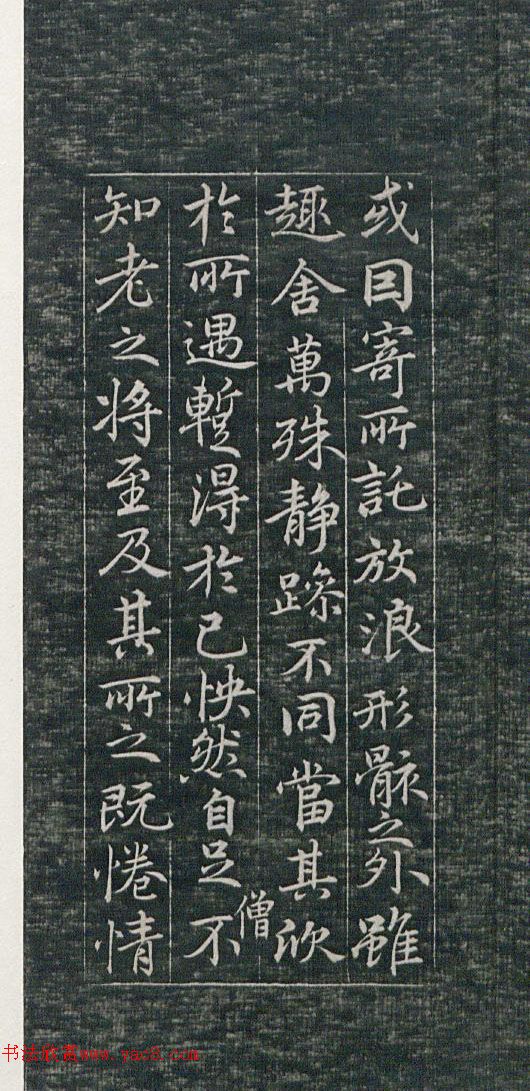 或因寄所託放浪形骸之外雖
趣舍萬殊静躁不同當其欣
僧
於所遇蹔得於己怏然自足不
知老之将至及其所之既惓情
书法欣赏www.yac8.com